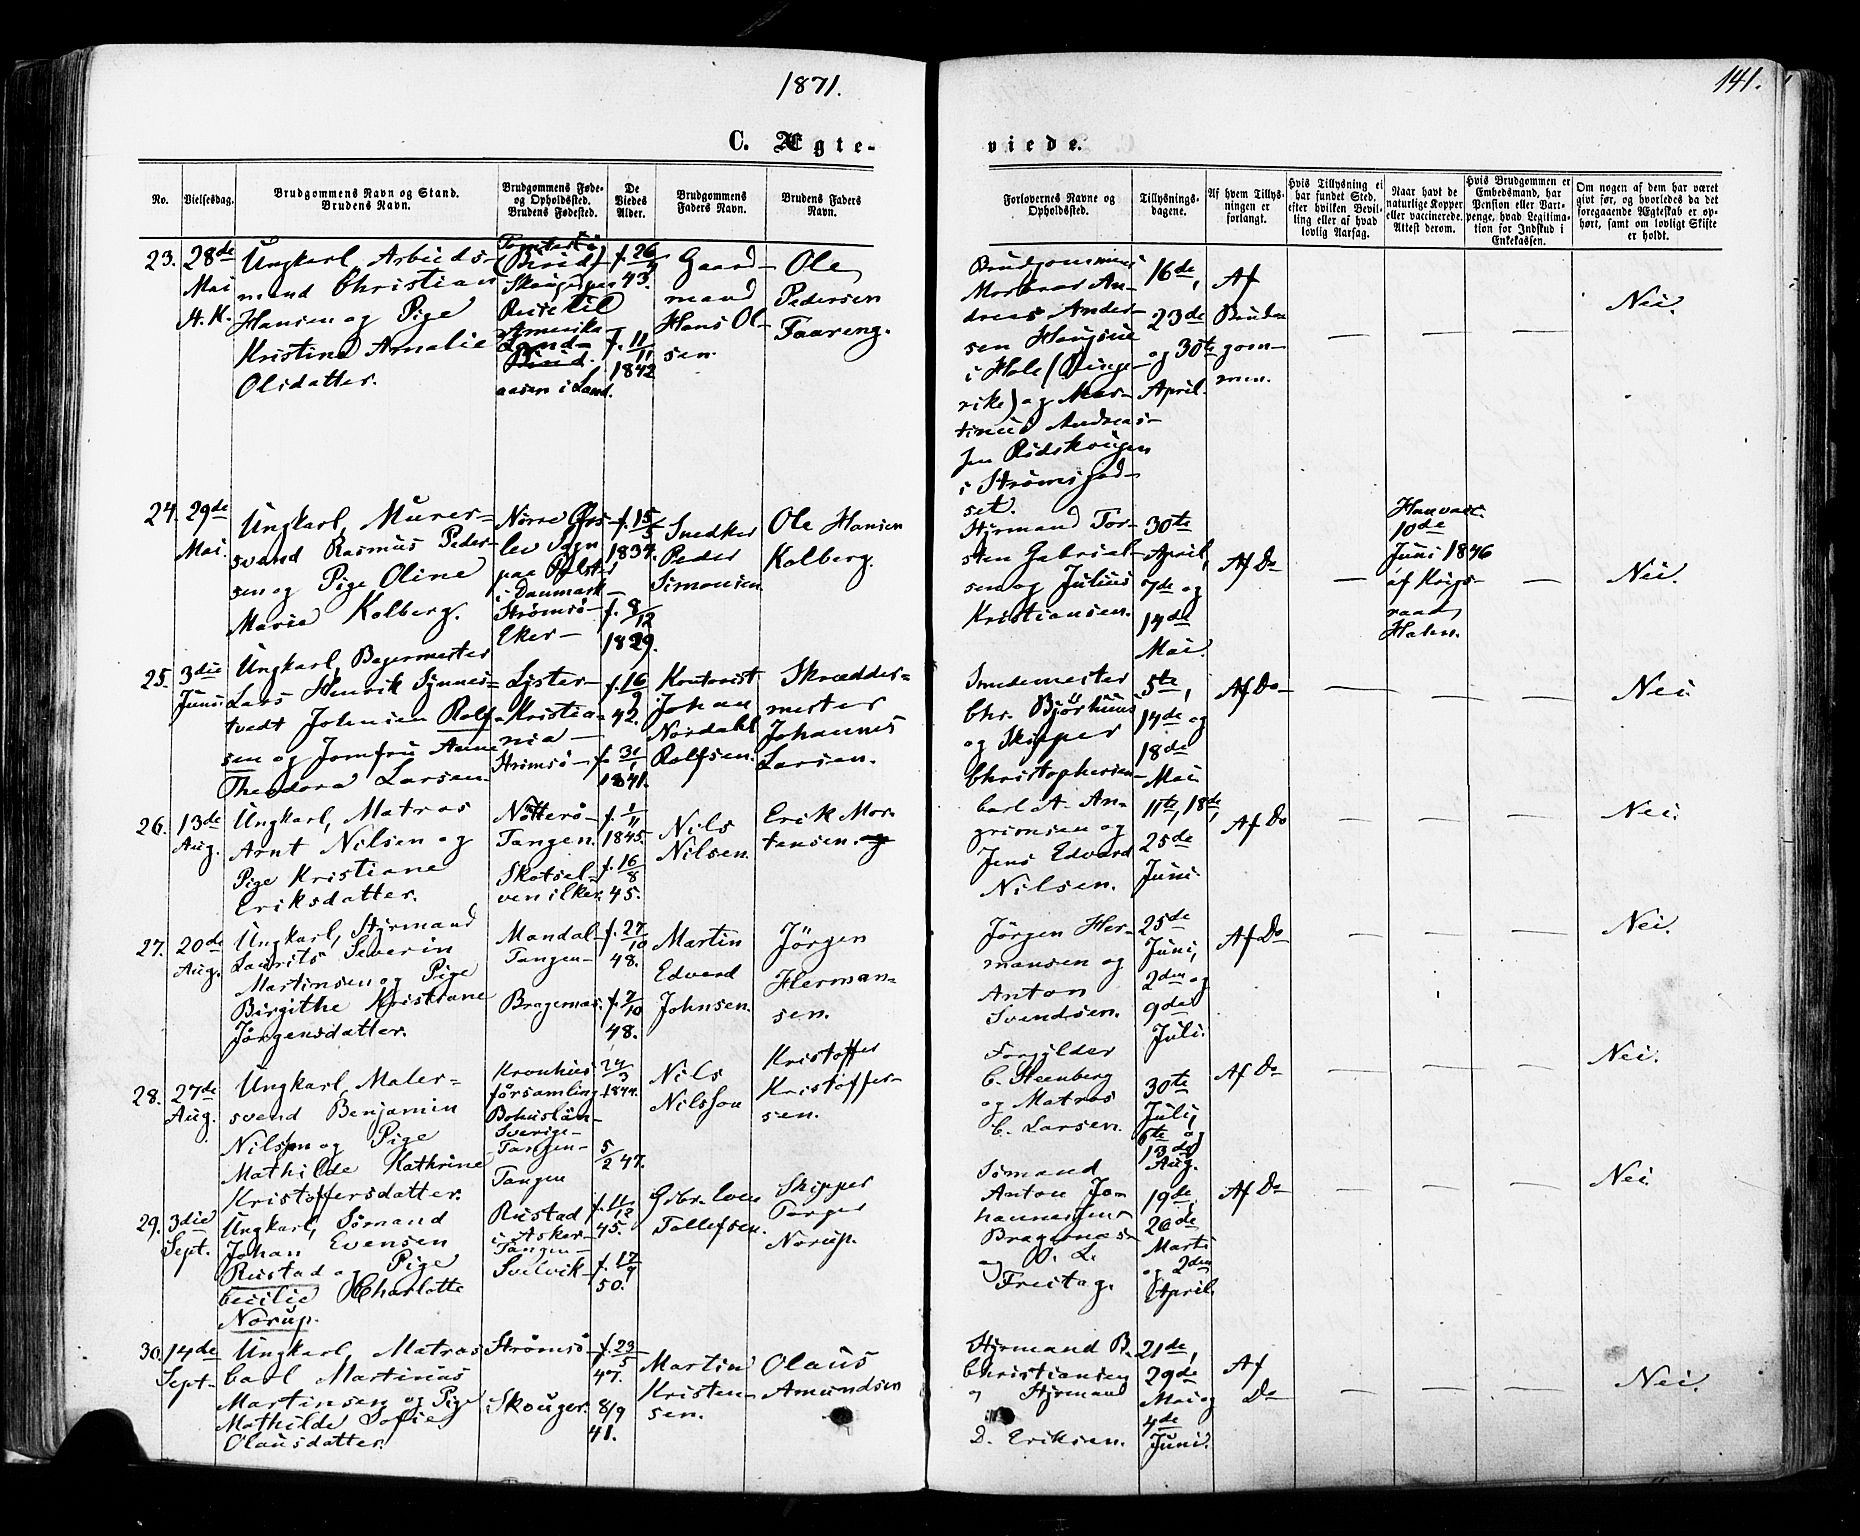 1871.
141.
C. Ægte-
viede.
No.
Vielsesdag.
Brudgommens Navn og Stand.
Brudens Navn.
Brudgommens Føde-
og Opholdssted.
Brudens Fødested.
De
Viedes
Alder.
Brudgommens
Faders Navn.
Brudens Faders
Navn.
Forlovernes Navne og
Opholdssted.
Tillysnings-
dagene.
Af hvem Tillys-
ningen er
forlangt.
Hvis Tillysning ei
har fundet Sted,
efter hvilken Bevil-
ling eller af hvad
lovlig Aarsag.
Naar havt de
naturlige Kopper
eller vaccinerede.
Attest derom.
Hvis Brudgommen er
Embedsmand, har
Pension eller Vart-
penge, hvad Legitima-
tion for Indskud i
Enkekassen.
Om nogen af dem har været
givt før, og hvorledes da det
foregaaende Ægteskab er op-
hørt, samt om lovligt Skifte
er holdt.
23.
28de
Mai
H. K.
Ungkarl, Arbeids-
mand Christian
Hansen og Pige
Kristine Amalie
Olsdatter.
(Birid)
Reise til
Amerika
Land-
Birid.
aasen i Land.
f. 26/4
43.
f. 11/11
1842
Gaard-
mand
Hans Ol-
sen.
Ole
Pedersen
Faareng.
Brudgommens
Morbror An-
dreas Ander-
sen Haugsue
i Hole (Ringe-
rike) og Mar-
tinus Andreas-
sen Rødskougen
i Strømsgod-
set.
16de,
23de
og 30te
April.
Af
Brud-
gom-
men.
—
—
—
Nei.
24.
29de
Mai.
Ungkarl, Murer-
svend Rasmus Peder-
sen og Pige Oline
Marie Kolberg.
Nørre Ørs-
lev Sogn
paa Falster
i Danmark—
Strømsø—
Eker—
f. 15/5
1834.
f. 8/12
1829.
Snedker
Peder
Simonsen.
Ole Hansen
Kolberg.
Styrmand Tor-
sten Gabriel-
sen og Julius
Kristiansen.
30te
April,
7de og
14de
Mai.
Af Do
—
Han vacc.
10de
Juni 1846
af Krigs-
raad
Hahn.
—
Nei.
25.
3die
Juni
Ungkarl, Bagermester
Lars Henrik Synnes-
tvedt Johnsen Rolf-
sen og Jomfru Anne
Theodora Larsen.
Lyster—
Kristia-
nia—
Strømsø—
f. 16/9
42.
f. 31/1
1841.
Kontorist
Johan
Nordahl
Rolfsen.
Skrædder-
mester
Johannes
Larsen.
Smedemester
Chr. Bjørhuus
og Skipper
Christophersen
5te,
14de og
18de
Mai
Af Do—
—
—
—
Nei.
26.
13de
Aug.
Ungkarl, Matros
Arnt Nilsen og
Pige Kristiane
Eriksdatter.
Nøtterø—
Tangen.
Skotsel-
ven i Eker.
f. 1/11
1845.
f. 16/8
45.
Nils
Nilsen.
Erik Mor-
tensen.
Carl A. An-
grimsen og
Jens Edvard
Nilsen.
11te, 18de,
25de
Juni
Af Do
—
—
—
Nei.
27.
20de
Aug.
Ungkarl, Styrmand
Laurits Severin
Martinsen og Pige
Birgithe Kristiane
Jørgensdatter.
Mandal—
Tangen—
Bragernæs.
f. 27/10
48.
f. 7/10
48.
Martin
Edvard
Johnsen.
Jørgen
Herman-
sen.
Jørgen Her-
mansen og
Anton
Svendsen.
25de
Juni,
2den og
9de
Juli.
Af Do
—
—
—
Nei.
28.
27de
Aug.
Ungkarl, Maler-
svend Benjamin
Nilsson og Pige
Mathilde Kathrine
Kristoffersdatter.
Kronhus
församling
Bohuslän—
Sverige—
Tangen—
Tangen
24/3
1844.
5/2 47.
Nils
Nilsson
Kristoffer
Kristoffer-
sen.
Forgylder
C. Steenberg
og Matros
C. Larsen.
30te
Juli,
6te og
13de
Aug.
Af Do
—
—
—
Nei.
29.
3die
Sept.
Ungkarl, Sømand
Johan Evensen
Rustad og Pige
Cecilie Charlotte
Norup.
Rustad
i Asker—
Tangen—
Svelvik—
f. 11/12
45.
f. 17/9
50.
Gbr. Even
Tollefsen.
Skipper
Torger
Norup.
Sømand
Anton Jo-
hannessen
Bragernæs—
og O. L.
Freitag.
19de,
26de
Marts
og 2den
April.
Af Do
—
—
—
Nei.
30.
14de
Sept.
Ungkarl, Matros
Carl Martinus
Martinsen og Pige
Mathilde Sofie
Olausdatter.
Strømsø—
Skouger.
f. 23/5
47.
8/9
41.
Martin
Kristen-
sen.
Olaus
Amundsen
Styrmand B.
Christiansen
og Styrmand
D. Eriksen.
21de,
29de
Mai og
4de
Juni.
Af
Do
—
—
—
Nei.